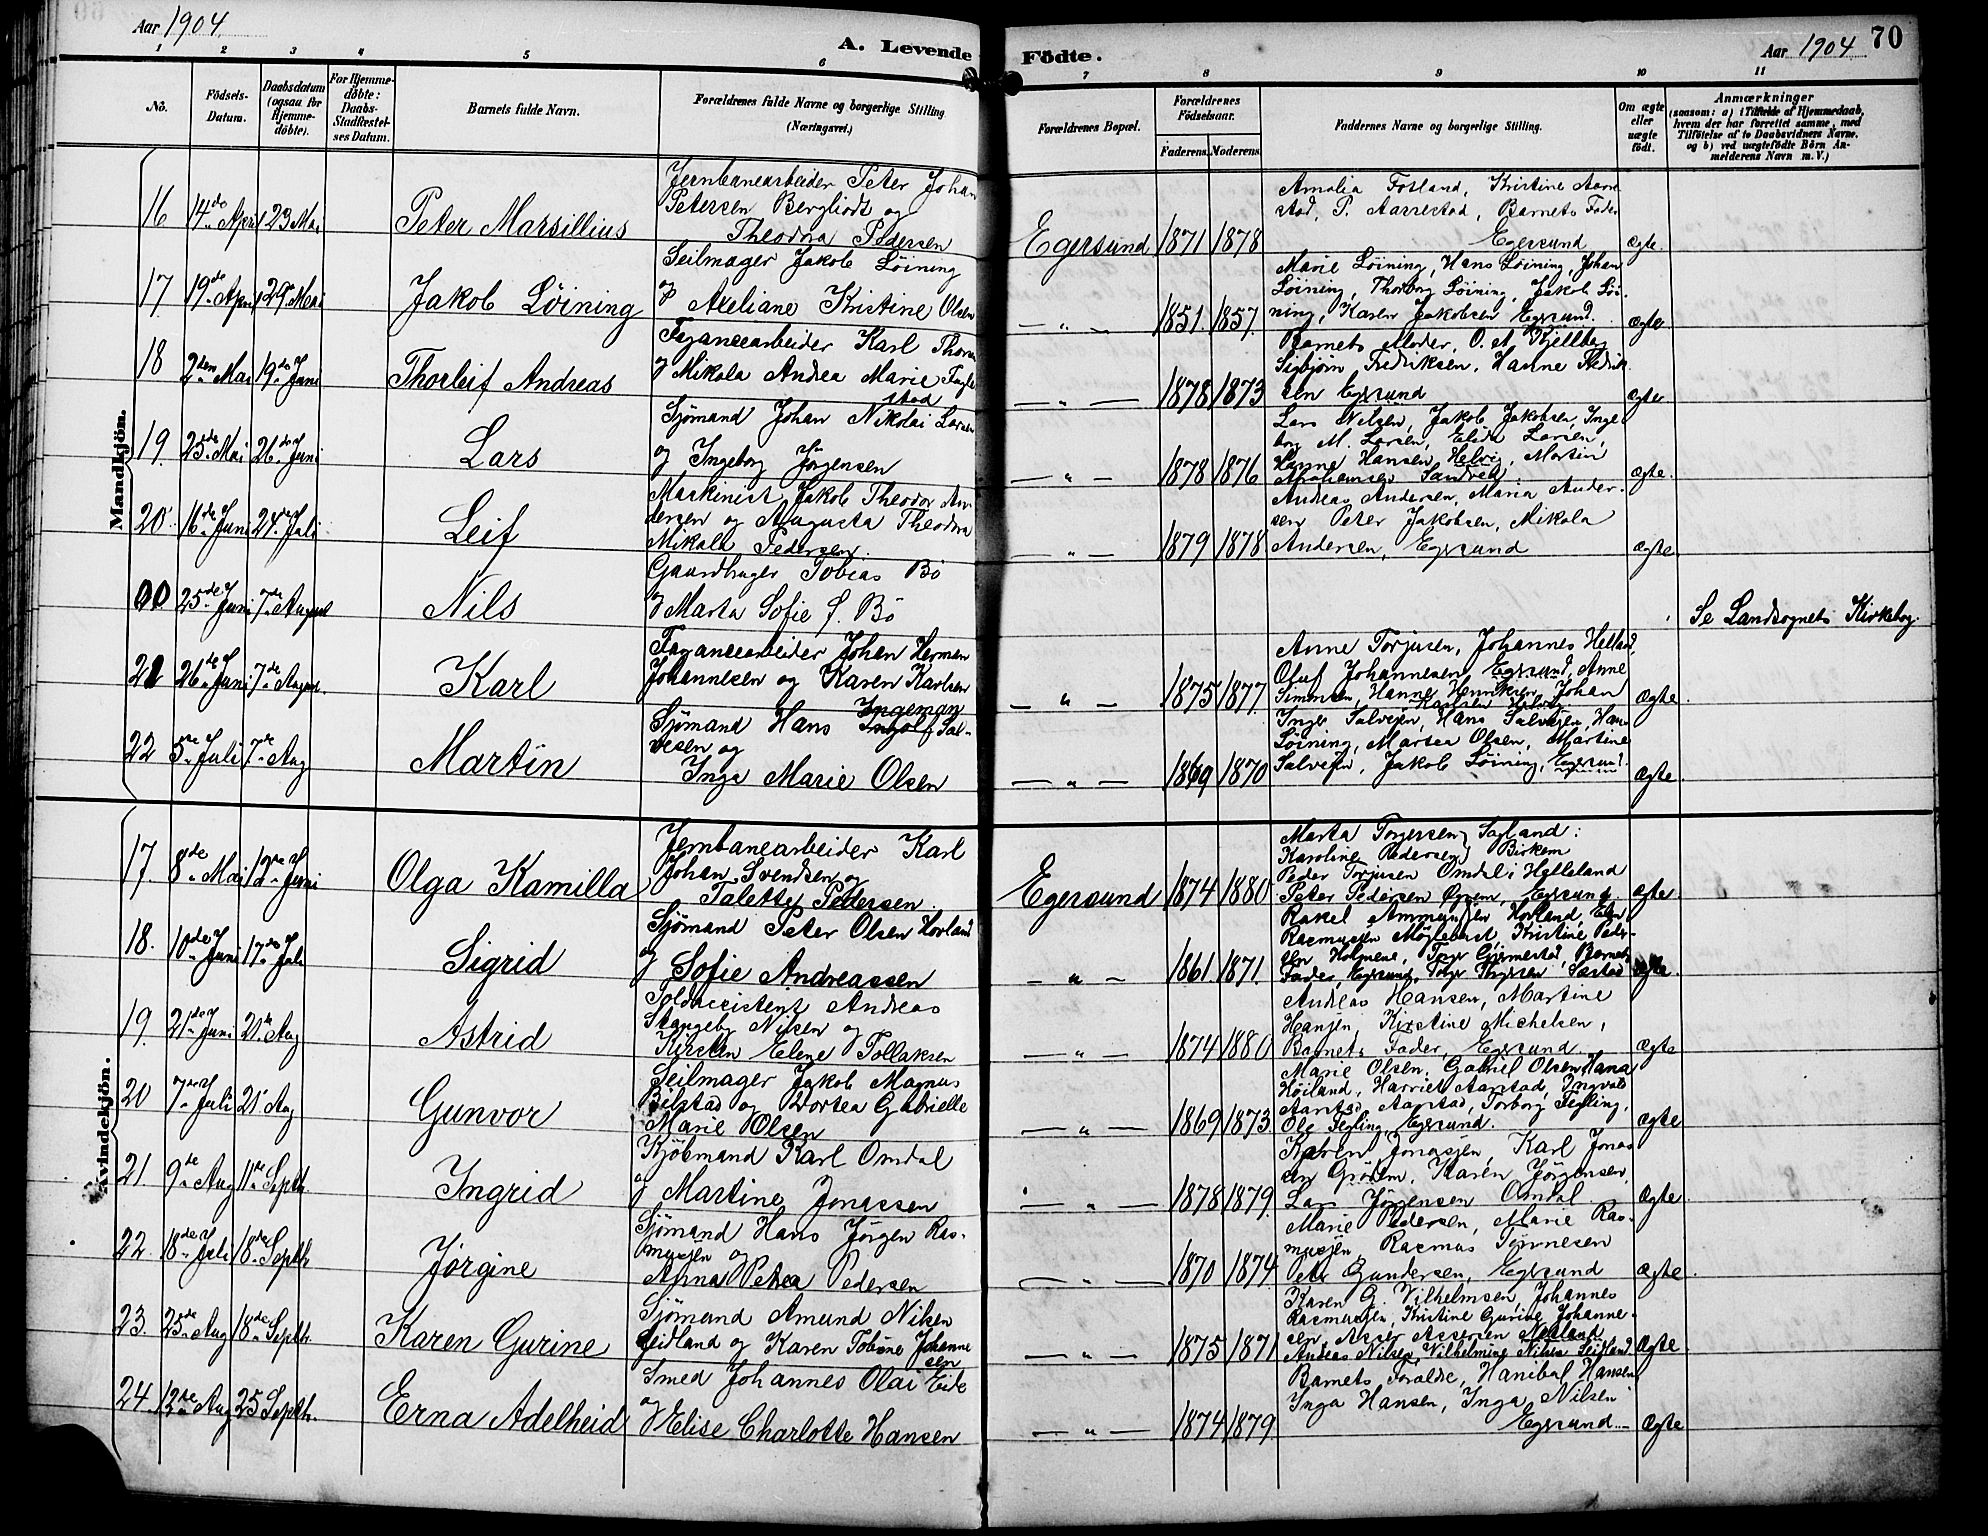 Aar 1904.
A. Levende Födte.
Aar 1904
70
1 2 3 4 5 6 7 8 9 10 11
No.
Födsels-
Datum.
Daabsdatum
(ogsaa för
Hjemme-
döbte).
For Hjemme-
döbte:
Daabs-
Stadfæstel-
ses Datum.
Barnets fulde Navn.
Forældrenes fulde Navne og borgerlige Stilling
(Næringsvei.)
Forældrenes Bopæl.
Forældrenes
Födselsaar.
Faderens. Moderens.
Faddernes Navne og borgerlige Stilling.
Om ægte
eller
uægte
födt.
Anmærkninger
(saasom: a) i Tilfælde af Hjemmedaab,
hvem der har forrettet samme, med
Tilföielse af to Daabsvidners Navne.
og b) ved uægtefödte Börn An-
melderens Navn m. V.)
Mandkjön.
16 14de April 23 Mai
Peter Marsillius
Jernbanearbeider Peter Johan
Petersen Bergliodt og
Theodora Pedersen
Egersund 1871 1878
Amalia Fosland, Kristine Aarre
stad, P. Aarrestad, Barnets Fader
Egersund
ægte.
17. 19de April 29 Mai
Jakob Löining
Seilmager Jakob Löining
og Axeliane Kristine Olsen
— " — 1851. 1857.
Marie Löining, Hans Löining, Johan
Löining, Thorborg Löining, Jakob Löi-
ning, Karen Jakobsen Egersund.
ægte
18 2den Mai 19de Juni
Thorleif Andreas
Fayancearbeider Karl Thorsen
og Mikala Andrea Marie Fugle
stad
— " — 1878 1873
Barnets Moder, O. A. Kjellby
Sigbjørn Fredriksen, Hanne Fredrik
sen Egersund
ægte
19. 25de Mai 26de Juni
Lars
Sjömand Johan Nikolai Larsen
og Ingeborg Jörgensen
— " — 1878 1876
Lars Nilsen, Jakob Jakobsen, Inge
borg M. Larsen, Elida Larsen,
Hanne Hansen Helvig, Martin
Abrahamsen Sandved
ægte.
20. 16de Juni 24de Juli
Leif
Maskinist Jakob Theodor An
dersen og Augusta Theodora
Mikala Pedersen.
— " — 1879 1878
Andreas Andersen, Maria Ander-
sen Peter Jakobsen, Mikala
Andersen, Egersund
ægte.
00 25de Juni 7de August
Nils
Gaardbruger Tobias Bö
og Marta Sofie f. Bö
Se Landsognets Kirkebog.
21 26de Juni 7de August.
Karl
Fayancearbeider Johan Herman
Johannesen og Karen Karlsen
— " — 1875 1877.
Anne Torjusen, Johannes Helland,
Oluf Johannesen Egersund, Anne
Simonsen, Hanne Henriksen, Johan
Karlsen Helvig
ægte.
22 5te Juli 7de Aug
Martin
Ingeman
Sjömand Hans Ingolf Sal-
vesen og
Inga Marie Olsen
— " — 1869 1870
Inger Salvesen, Hans Salvesen, Hans
Löining, Martea Olsen, Martine
Salvesen, Jakob Löining, Egersund.
ægte
Kvindekjön.
17. 8de Mai 12te Juni
Olga Kamilla
Jernbanearbeider Karl
Johan Svendsen og
Talette Pedersen.
Egersund 1874 1880
Marta Torgersen Sagland:
Karoline Pedersen Birkem
Peder Torjusen Omdal i Helleland
Peter Pedersen Egersund
ægte.
18. 10de Juni 17de Juli
Sigrid
Sjömand Peter Olsen Hovland
og Sofie Andreassen
— " — 1861. 1871.
Rakel Hovland, Elen
Rasmussen Möglebust, Kristine Peder-
sen Holmene, Torger Gjermestad, Barnets
Fader, Egersund, Torger Torgersen Sæstad
ægte.
19. 21de Juni 21de Aug
Astrid
Toldassistent Andreas
Stangeby Nilsen og
Kirsten Elene Tollaksen
— " — 1874 1880
Andreas Hansen, Martine
Hansen, Kirstine Michelsen,
Barnets Fader, Egersund
ægte
20 7de Juli 21 Aug
Gunvor
Seilmager Jakob Magnus
Bilstad og Dortea Gabrielle
Marie Olsen
— " — 1869 1873.
Marie Olsen, Gabriel Olsen, Hana
Höiland, Harriet Aarstad, Ingvald
Aarstad, Aarstad, Torborg Fegling,
Ole Fegling, Egersund.
ægte
21. 9de Aug 11te Septb.
Ingrid
Kjöbmand Karl Omdal
og Martine Jonassen
— " — 1878 1879.
Karen Jonassen, Karl Jonas
sen Grödem, Karen Jörgensen,
Lars Jörgensen Omdal.
ægte
22. 18de Juli 18de Septb
Jørgine
Sjömand Hans Jørgen Ras-
mussen og
Anna Petrea Pedersen
— " — 1870 1874.
Marie Pedersen, Marie Ras-
mussen, Rasmus Tönnesen
Peter Gundersen, Egersund
ægte
23. 25de Aug 18de Septb.
Karen Gurine
Sjömand Amund Nilsen
Seidland og Karen Tobine Johanne
sen
— " — 1875 1871
Karen G. Vilhelmsen, Johannes
Rasmussen, Kristine Gurine Johanne-
sen, Asser Assersen Nesland
Andreas Nilsen, Vilhelmine Nilsen Seidland
ægte
24. 12te Aug 25 Septb.
Erna Adelheid
Smed Johannes Olai Eide
og Elise Charlotte Hansen
— " — 1874 1879
Barnets Foræld­re, Hanibal Hansen
Inga Hansen, Inga Nilsen
Egersund.
ægte